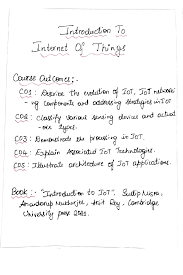 Introduction To
Internet Of Things
Course Outcomes:-
CO1: Describe the evolution of IoT, IoT network
-ing components and addressing strategies in IoT
CO2: Classify various sensing devices and actuat
-ors types.
CO3: Demonstrate the processing in IoT.
CO4: Explain Associated IoT Technologies.
CO5: Illustrate architecture of IoT applications.
Book:- "Introduction to IoT", Sudip Misra,
Anandarup Mukherjee, Arijit Roy, Cambridge
University press 2021.